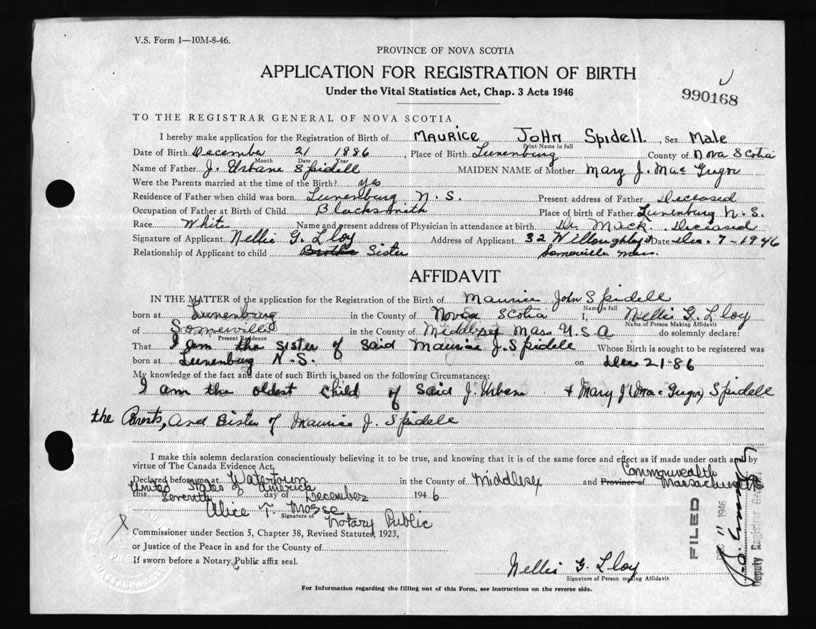 V.S. Form 1—10M-8-46.
PROVINCE OF NOVA SCOTIA
APPLICATION FOR REGISTRATION OF BIRTH
Under the Vital Statistics Act, Chap. 3 Acts 1946
990168
TO THE REGISTRAR GENERAL OF NOVA SCOTIA
I hereby make application for the Registration of Birth of MAURICE JOHN Spidell, Sex Male
Print Name in full
Date of Birth December 21 1886, Place of Birth Lunenburg County of Nova Scotia
Month Day Year
Name of Father J. Urbane Spidell MAIDEN NAME of Mother Mary J. MacGregor
Were the Parents married at the time of the Birth? yes
Residence of Father when child was born Lunenburg N.S. Present address of Father Deceased
Occupation of Father at Birth of Child Blacksmith Place of birth of Father Lunenburg N.S.
Race White Name and present address of Physician in attendance at birth Dr. Mack. Deceased
Signature of Applicant Nellie G. Lloy Address of Applicant 32 Willoughby St Date Dec. 7-1946
Relationship of Applicant to child Sister Somerville Mass.
AFFIDAVIT
IN THE MATTER of the application for the Registration of the Birth of Maurice John Spidell
Name in full
born at Lunenburg in the County of Nova Scotia I, Nellie G. Lloy
Name of Person Making Affidavit
of Somerville in the County of Middlesex Mass U.S.A do solemnly declare:
Present Residence
That I am the sister of said Maurice J. Spidele Whose Birth is sought to be registered was
born at Lunenburg N.S. on Dec 21-86
My knowledge of the fact and date of such Birth is based on the following Circumstances:
I am the oldest child of said J. Urban & Mary J (Mac Gregor) Spidell
the Parents, and Sister of Maurice J. Spidell
I make this solemn declaration conscientiously believing it to be true, and knowing that it is of the same force and effect as if made under oath and by
virtue of The Canada Evidence Act.
Declared before me at Watertown in the County of Middlesex and Province of Commonwealth Massachusetts
United States of America
this Seventh day of December 1946
Alice T. Mosse
Signature of Notary Public
Commissioner under Section 5, Chapter 38, Revised Statutes, 1923,
or Justice of the Peace in and for the County of
If sworn before a Notary Public affix seal.
Nellie G. Lloy
Signature of Person making Affidavit
FILED
11 1946
Deputy Registrar General
For Information regarding the filling out of this Form, see instructions on the reverse side.